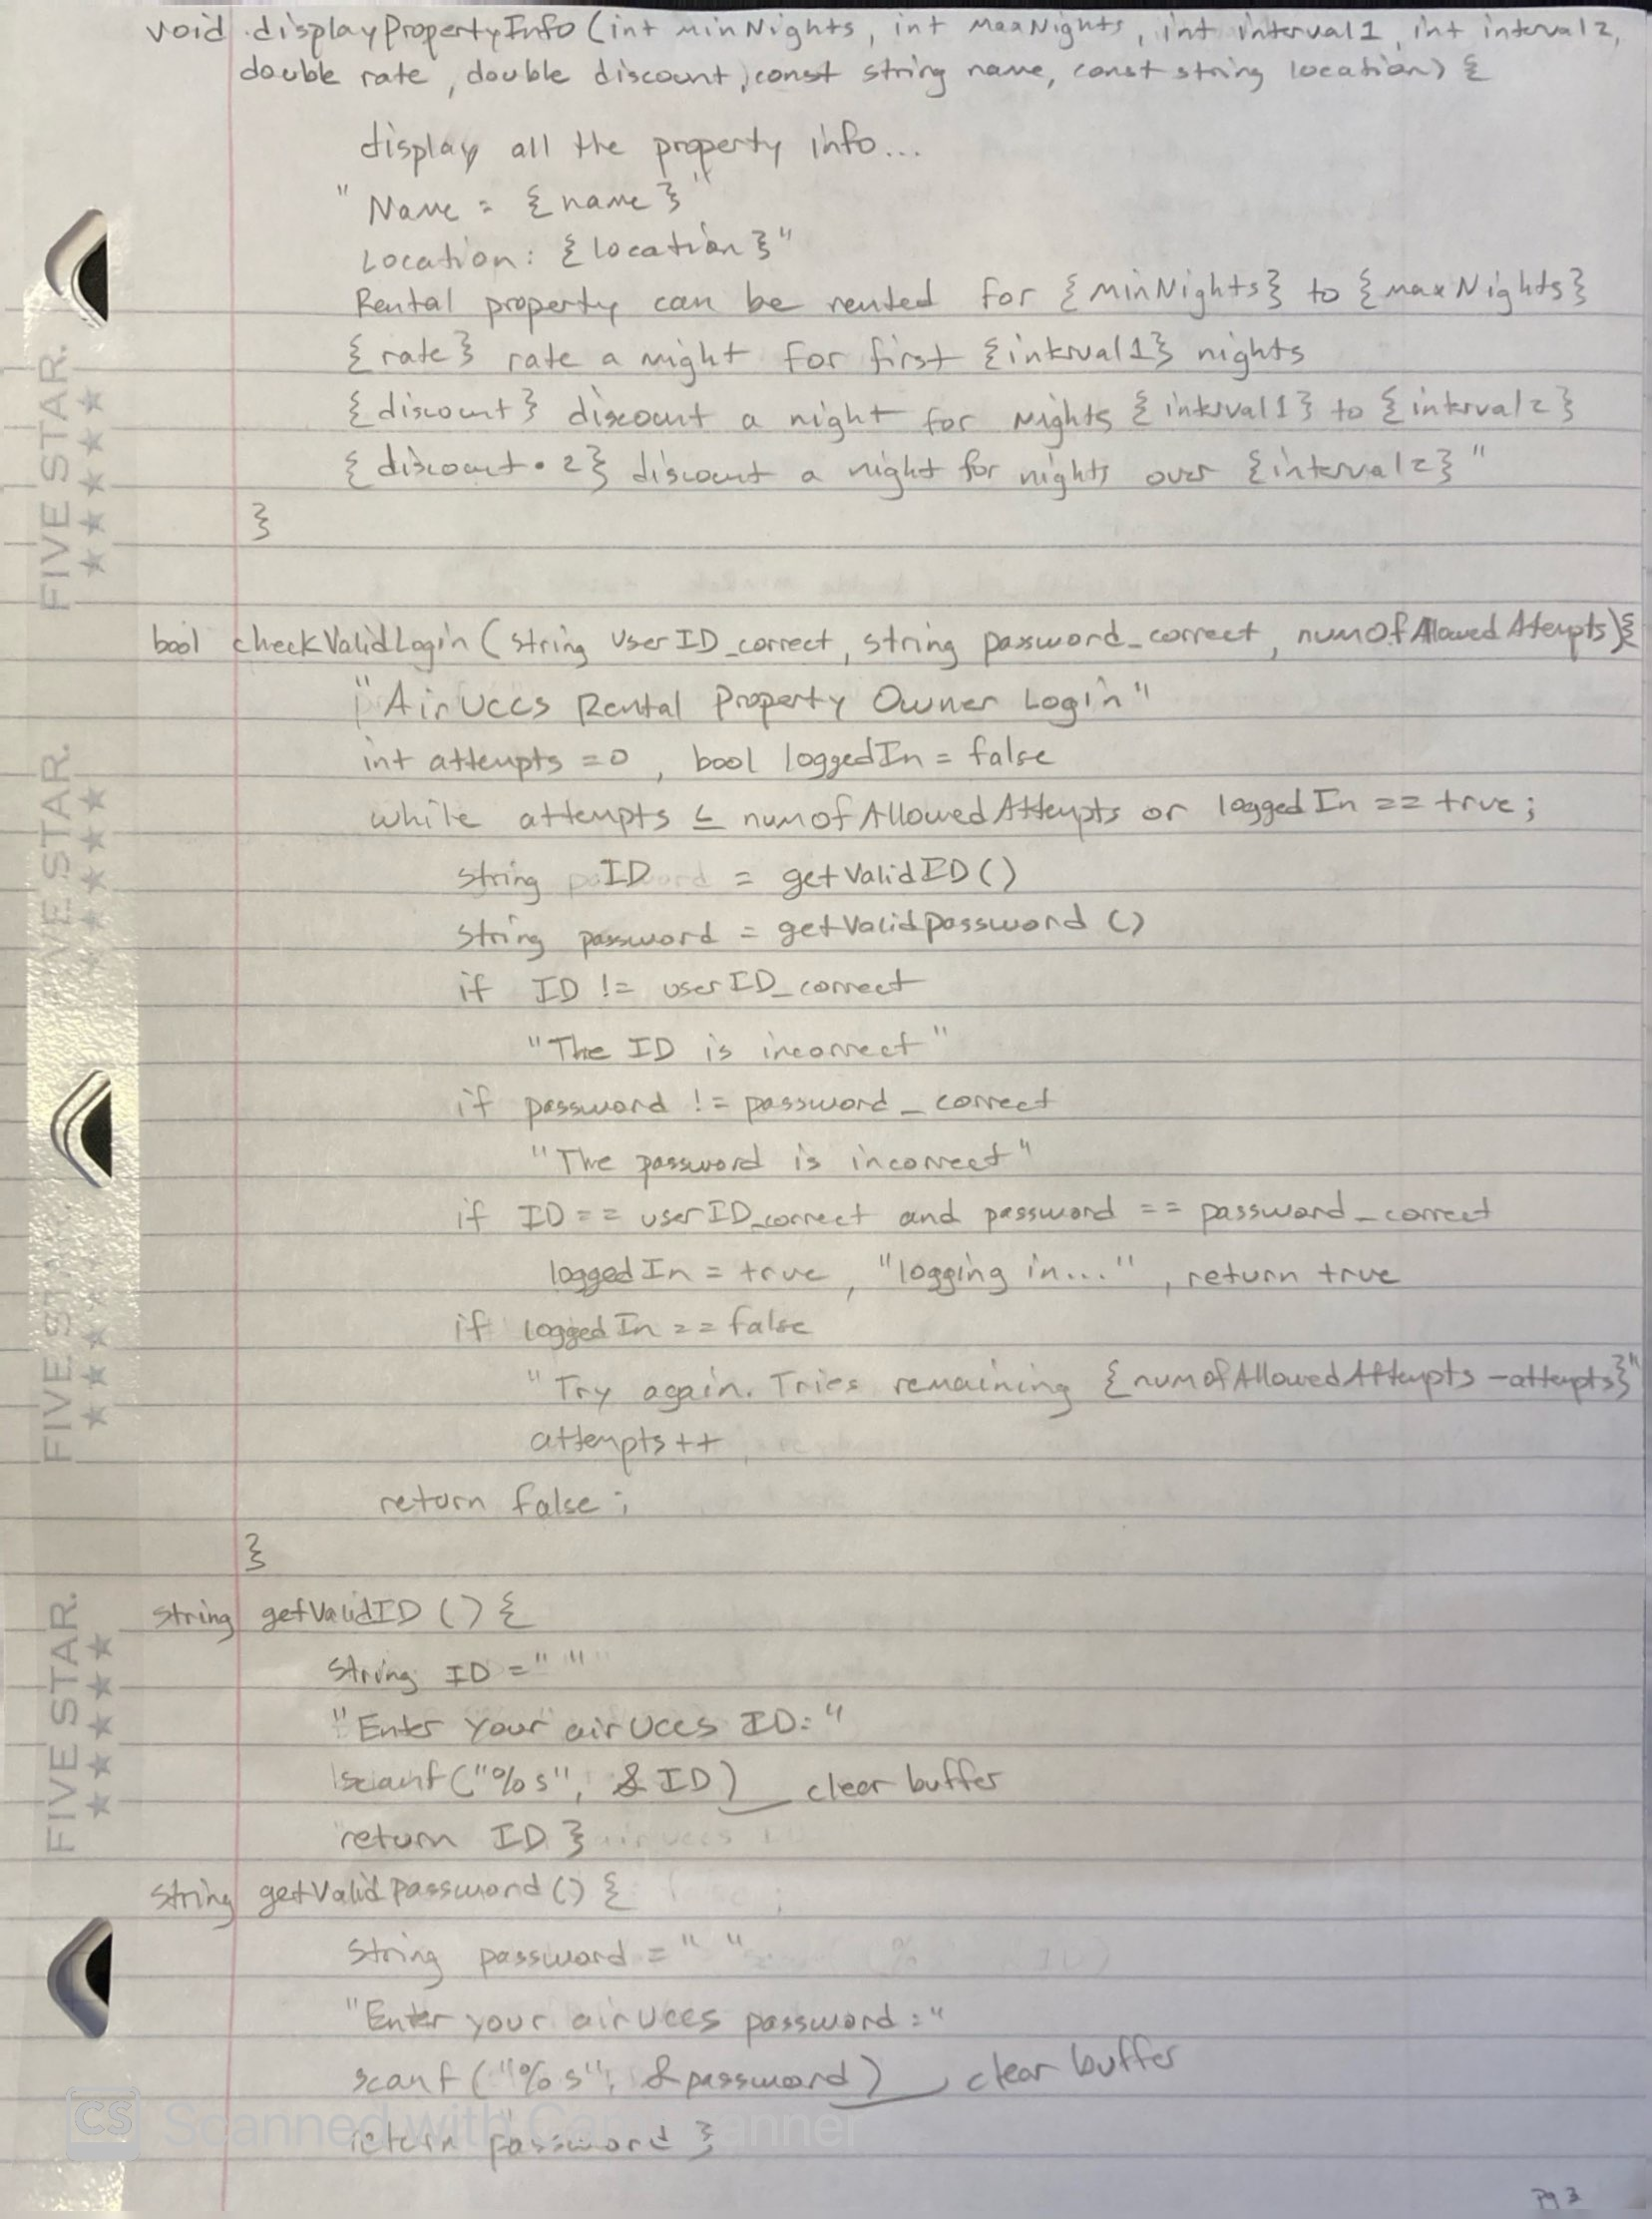 void displayPropertyInfo (int minNights, int maxNights, int interval1, int interval2,
double rate, double discount, const string name, const string location) {
display all the property info...
"Name = {name}"
Location: {location}"
Rental property can be rented for {minNights} to {maxNights}
{rate} rate a night for first {interval1} nights
{discount} discount a night for nights {interval1} to {interval2}
{discount • 2} discount a night for nights over {interval2}"
}
bool checkValidLogin (string userID_correct, string password_correct, numOfAllowedAtempts){
"AirUccs Rental Property Owner Login"
int attempts = 0, bool loggedIn = false
while attempts ≤ numofAllowedAttempts or loggedIn == true;
string ID = getValidID()
string password = getValidpassword()
if ID != userID_correct
"The ID is incorrect"
if password != password_correct
"The password is incorrect"
if ID == userID_correct and password == password_correct
loggedIn = true, "logging in...", return true
if loggedIn == false
"Try again. Tries remaining {numofAllowedAttempts - attempts}"
attempts++
return false;
}
string getValidID () {
string ID = " "
"Enter your airUccs ID:"
scanf("%s", &ID) clear buffer
return ID }
string getValidpassword() {
string password = " "
"Enter your airUccs password:"
scanf("%s", &password) clear buffer
return password }
CS Scanned with CamScanner
pg 3
FIVE STAR.
FIVE STAR.
FIVE STAR.
FIVE STAR.